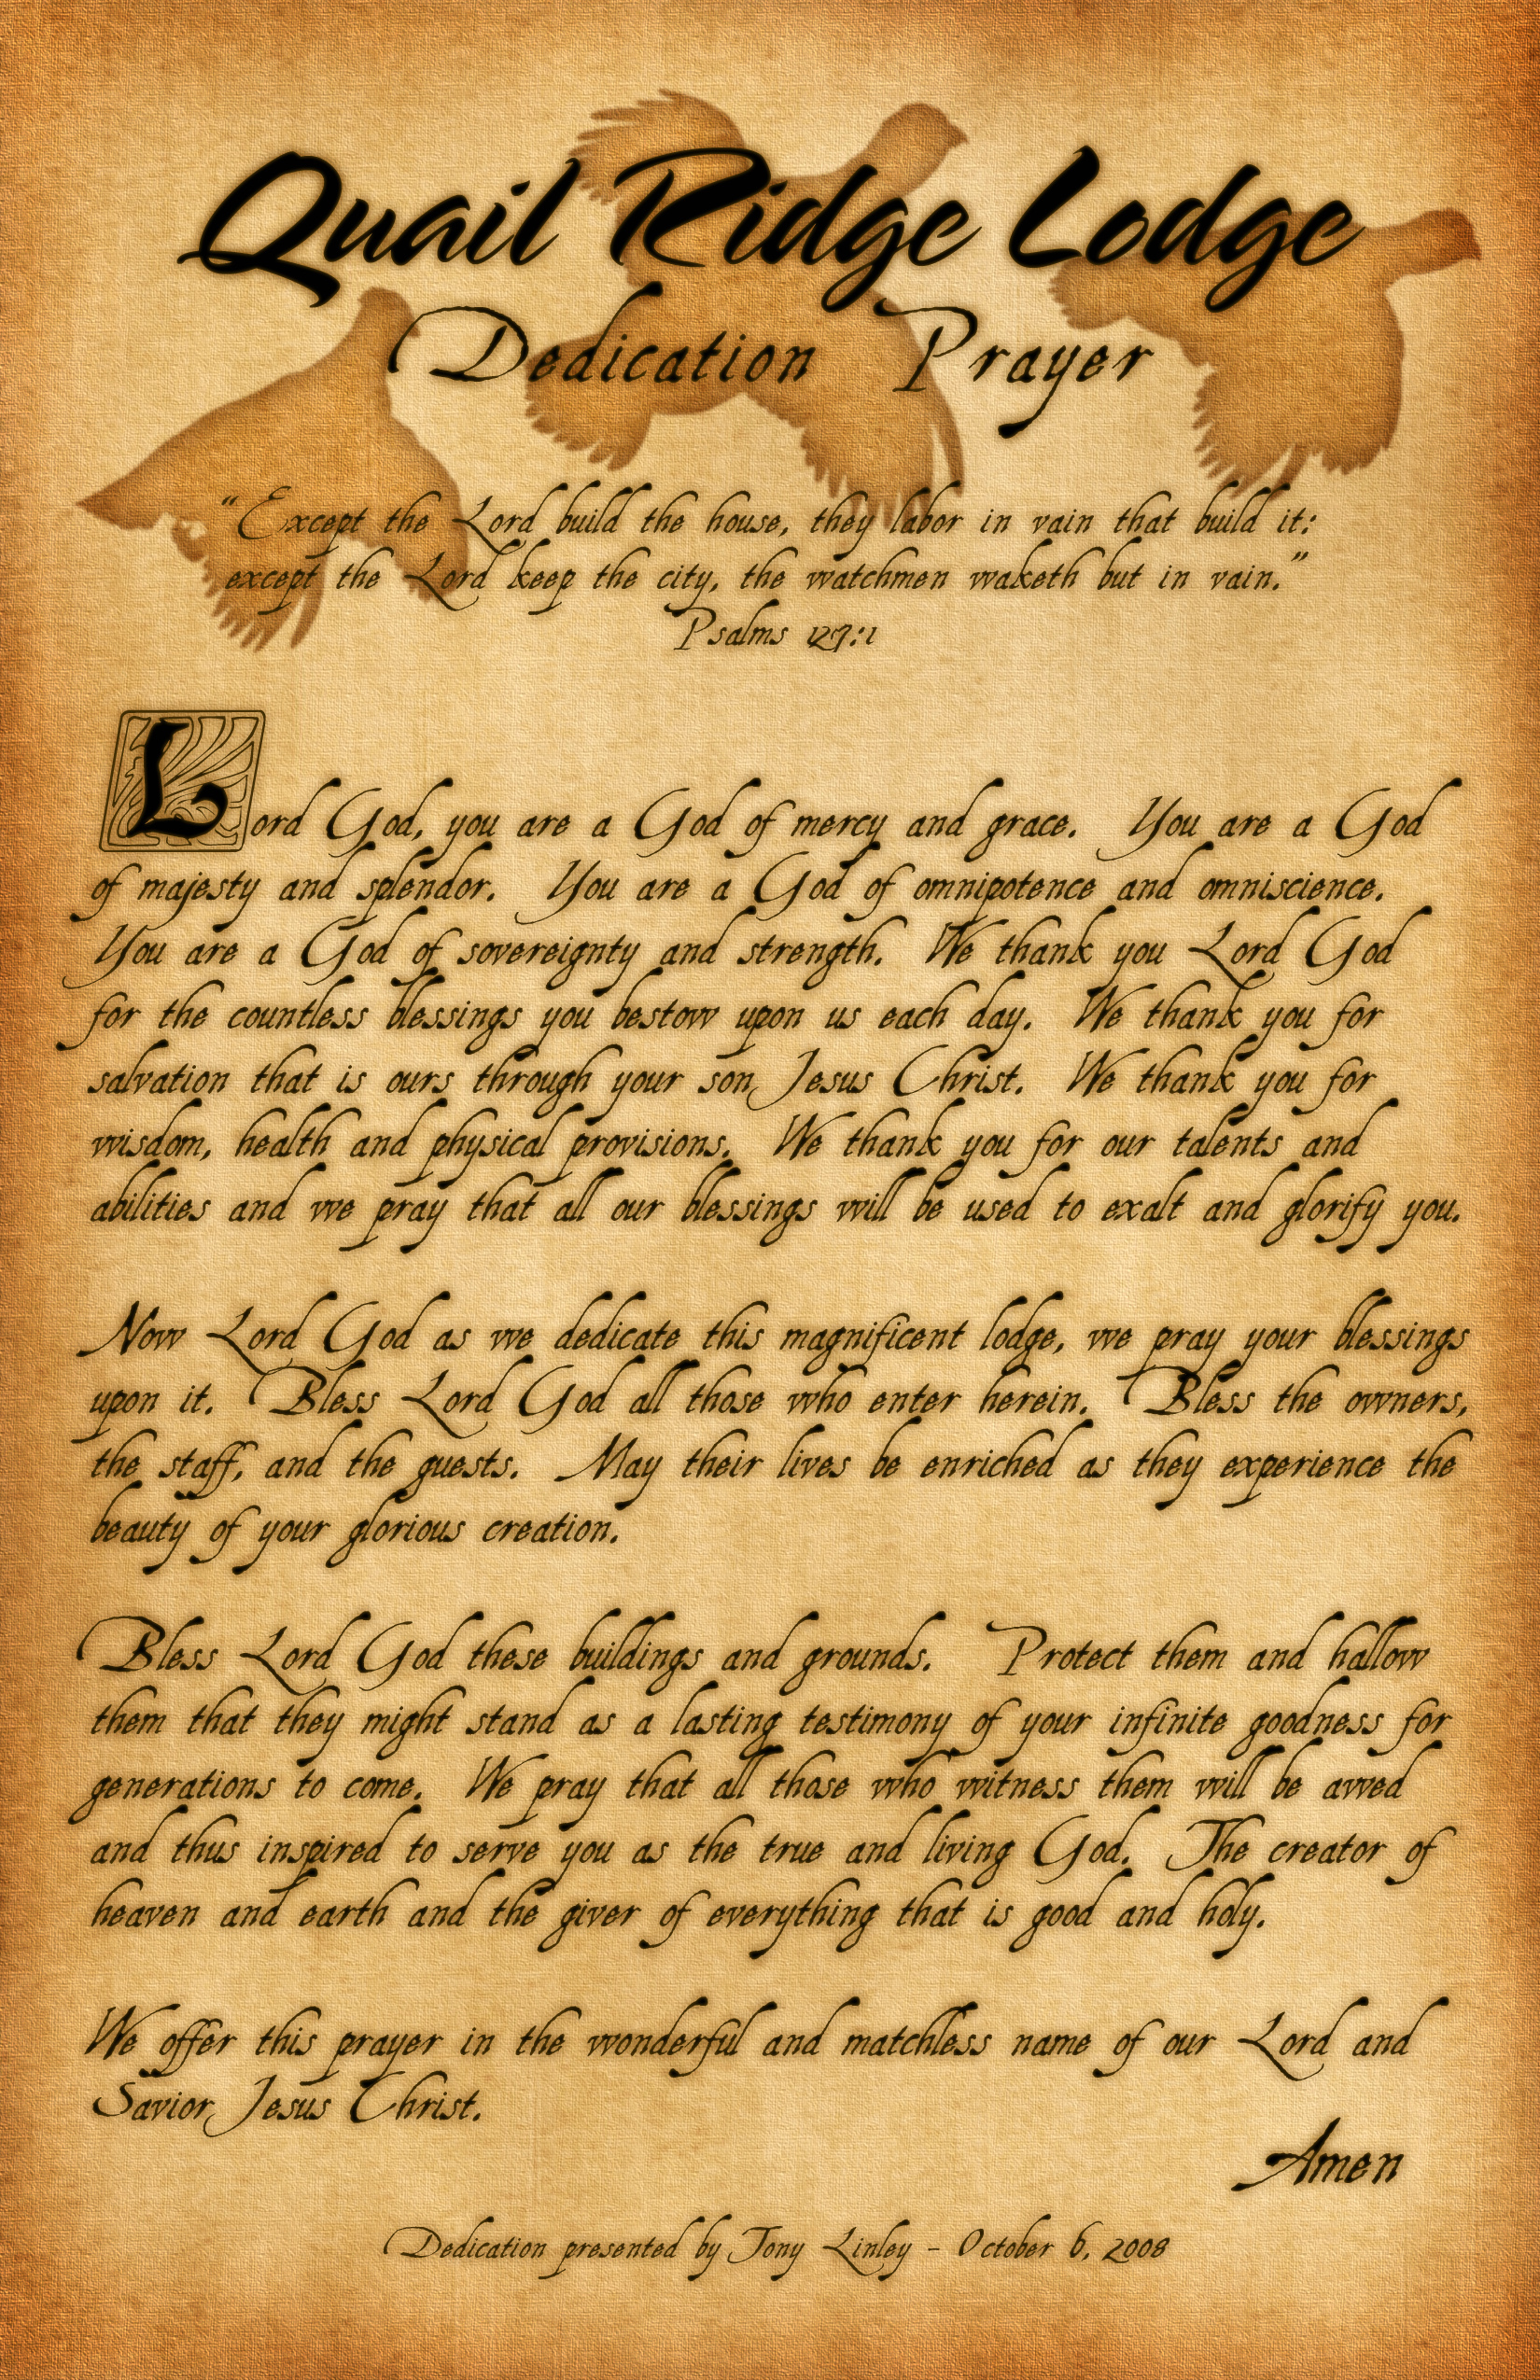 Quail Ridge Lodge
Dedication Prayer
"Except the Lord build the house, they labor in vain that build it:
except the Lord keep the city, the watchmen waketh but in vain."
Psalms 127:1
Lord God, you are a God of mercy and grace. You are a God
of majesty and splendor. You are a God of omnipotence and omniscience.
You are a God of sovereignty and strength. We thank you Lord God
for the countless blessings you bestow upon us each day. We thank you for
salvation that is ours through your son Jesus Christ. We thank you for
wisdom, health and physical provisions. We thank you for our talents and
abilities and we pray that all our blessings will be used to exalt and glorify you.
Now Lord God as we dedicate this magnificent lodge, we pray your blessings
upon it. Bless Lord God all those who enter herein. Bless the owners,
the staff, and the guests. May their lives be enriched as they experience the
beauty of your glorious creation.
Bless Lord God these buildings and grounds. Protect them and hallow
them that they might stand as a lasting testimony of your infinite goodness for
generations to come. We pray that all those who witness them will be awed
and thus inspired to serve you as the true and living God. The creator of
heaven and earth and the giver of everything that is good and holy.
We offer this prayer in the wonderful and matchless name of our Lord and
Savior Jesus Christ.
Amen
Dedication presented by Tony Linley - October 6, 2008